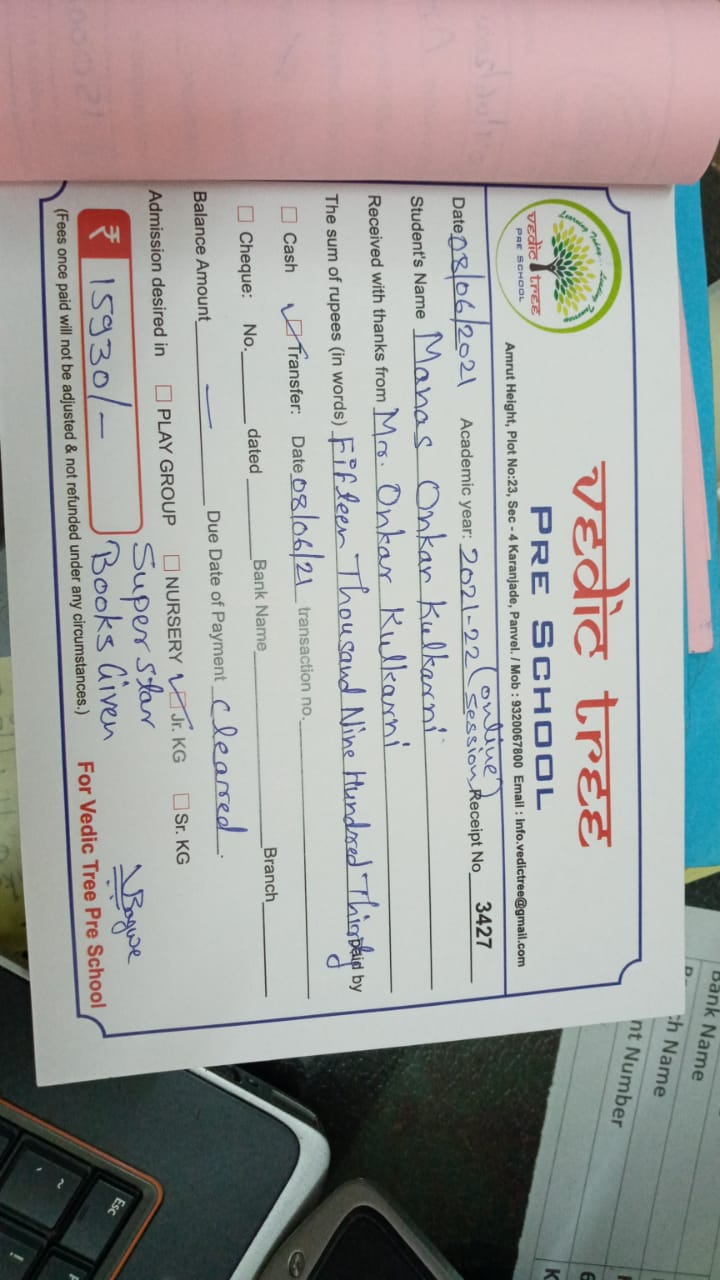 Learning Today... Leading Tomorrow
vedic tree
PRE SCHOOL
vedic tree
PRE SCHOOL
Amrut Height, Plot No:23, Sec - 4 Karanjade, Panvel. / Mob : 9320067800 Email : Info.vedictree@gmail.com
Date 08/06/2021 Academic year: 2021-22 (online session) Receipt No 3427
Student's Name Manas Onkar Kulkarni
Received with thanks from Mr. Onkar Kulkarni
The sum of rupees (in words) Fifteen Thousand Nine Hundred Thirty paid by
Cash Transfer: Date 08/06/21 transaction no.
Cheque: No. dated Bank Name Branch
Balance Amount — Due Date of Payment Cleared.
Admission desired in PLAY GROUP NURSERY Jr. KG Sr. KG
₹ 15930/- Super star
Books Given
(Fees once paid will not be adjusted & not refunded under any circumstances.)
For Vedic Tree Pre School
Bank Name
ch Name
nt Number
Esc